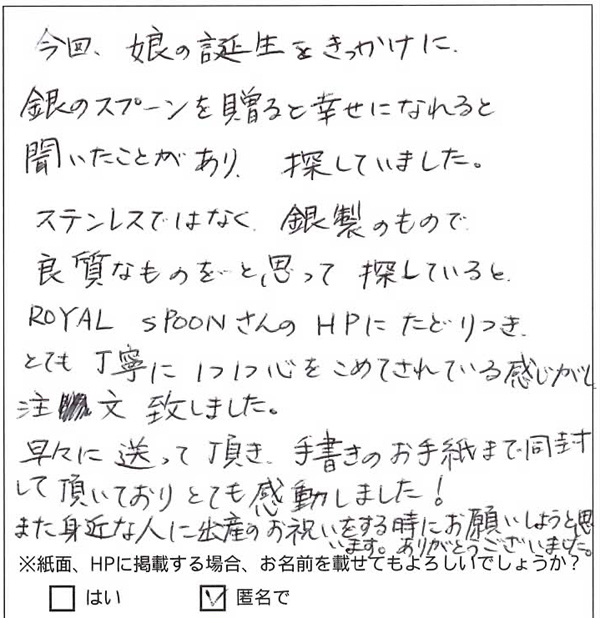 今回、娘の誕生をきっかけに、
銀のスプーンを贈ると幸せになれると
聞いたことがあり、探していました。
ステンレスではなく、銀製のもので
良質なものをと思って探していると、
ROYAL SPOONさんのHPにたどりつき、
とても丁寧に1つ1つ心をこめてされている感じがし
注文致しました。
早々に送って頂き、手書きのお手紙まで同封
して頂いておりとても感動しました!
また身近な人に出産のお祝いをする時にお願いしようと思
います。ありがとうございました。
※紙面、HPに掲載する場合、お名前を載せてもよろしいでしょうか?
はい 匿名で